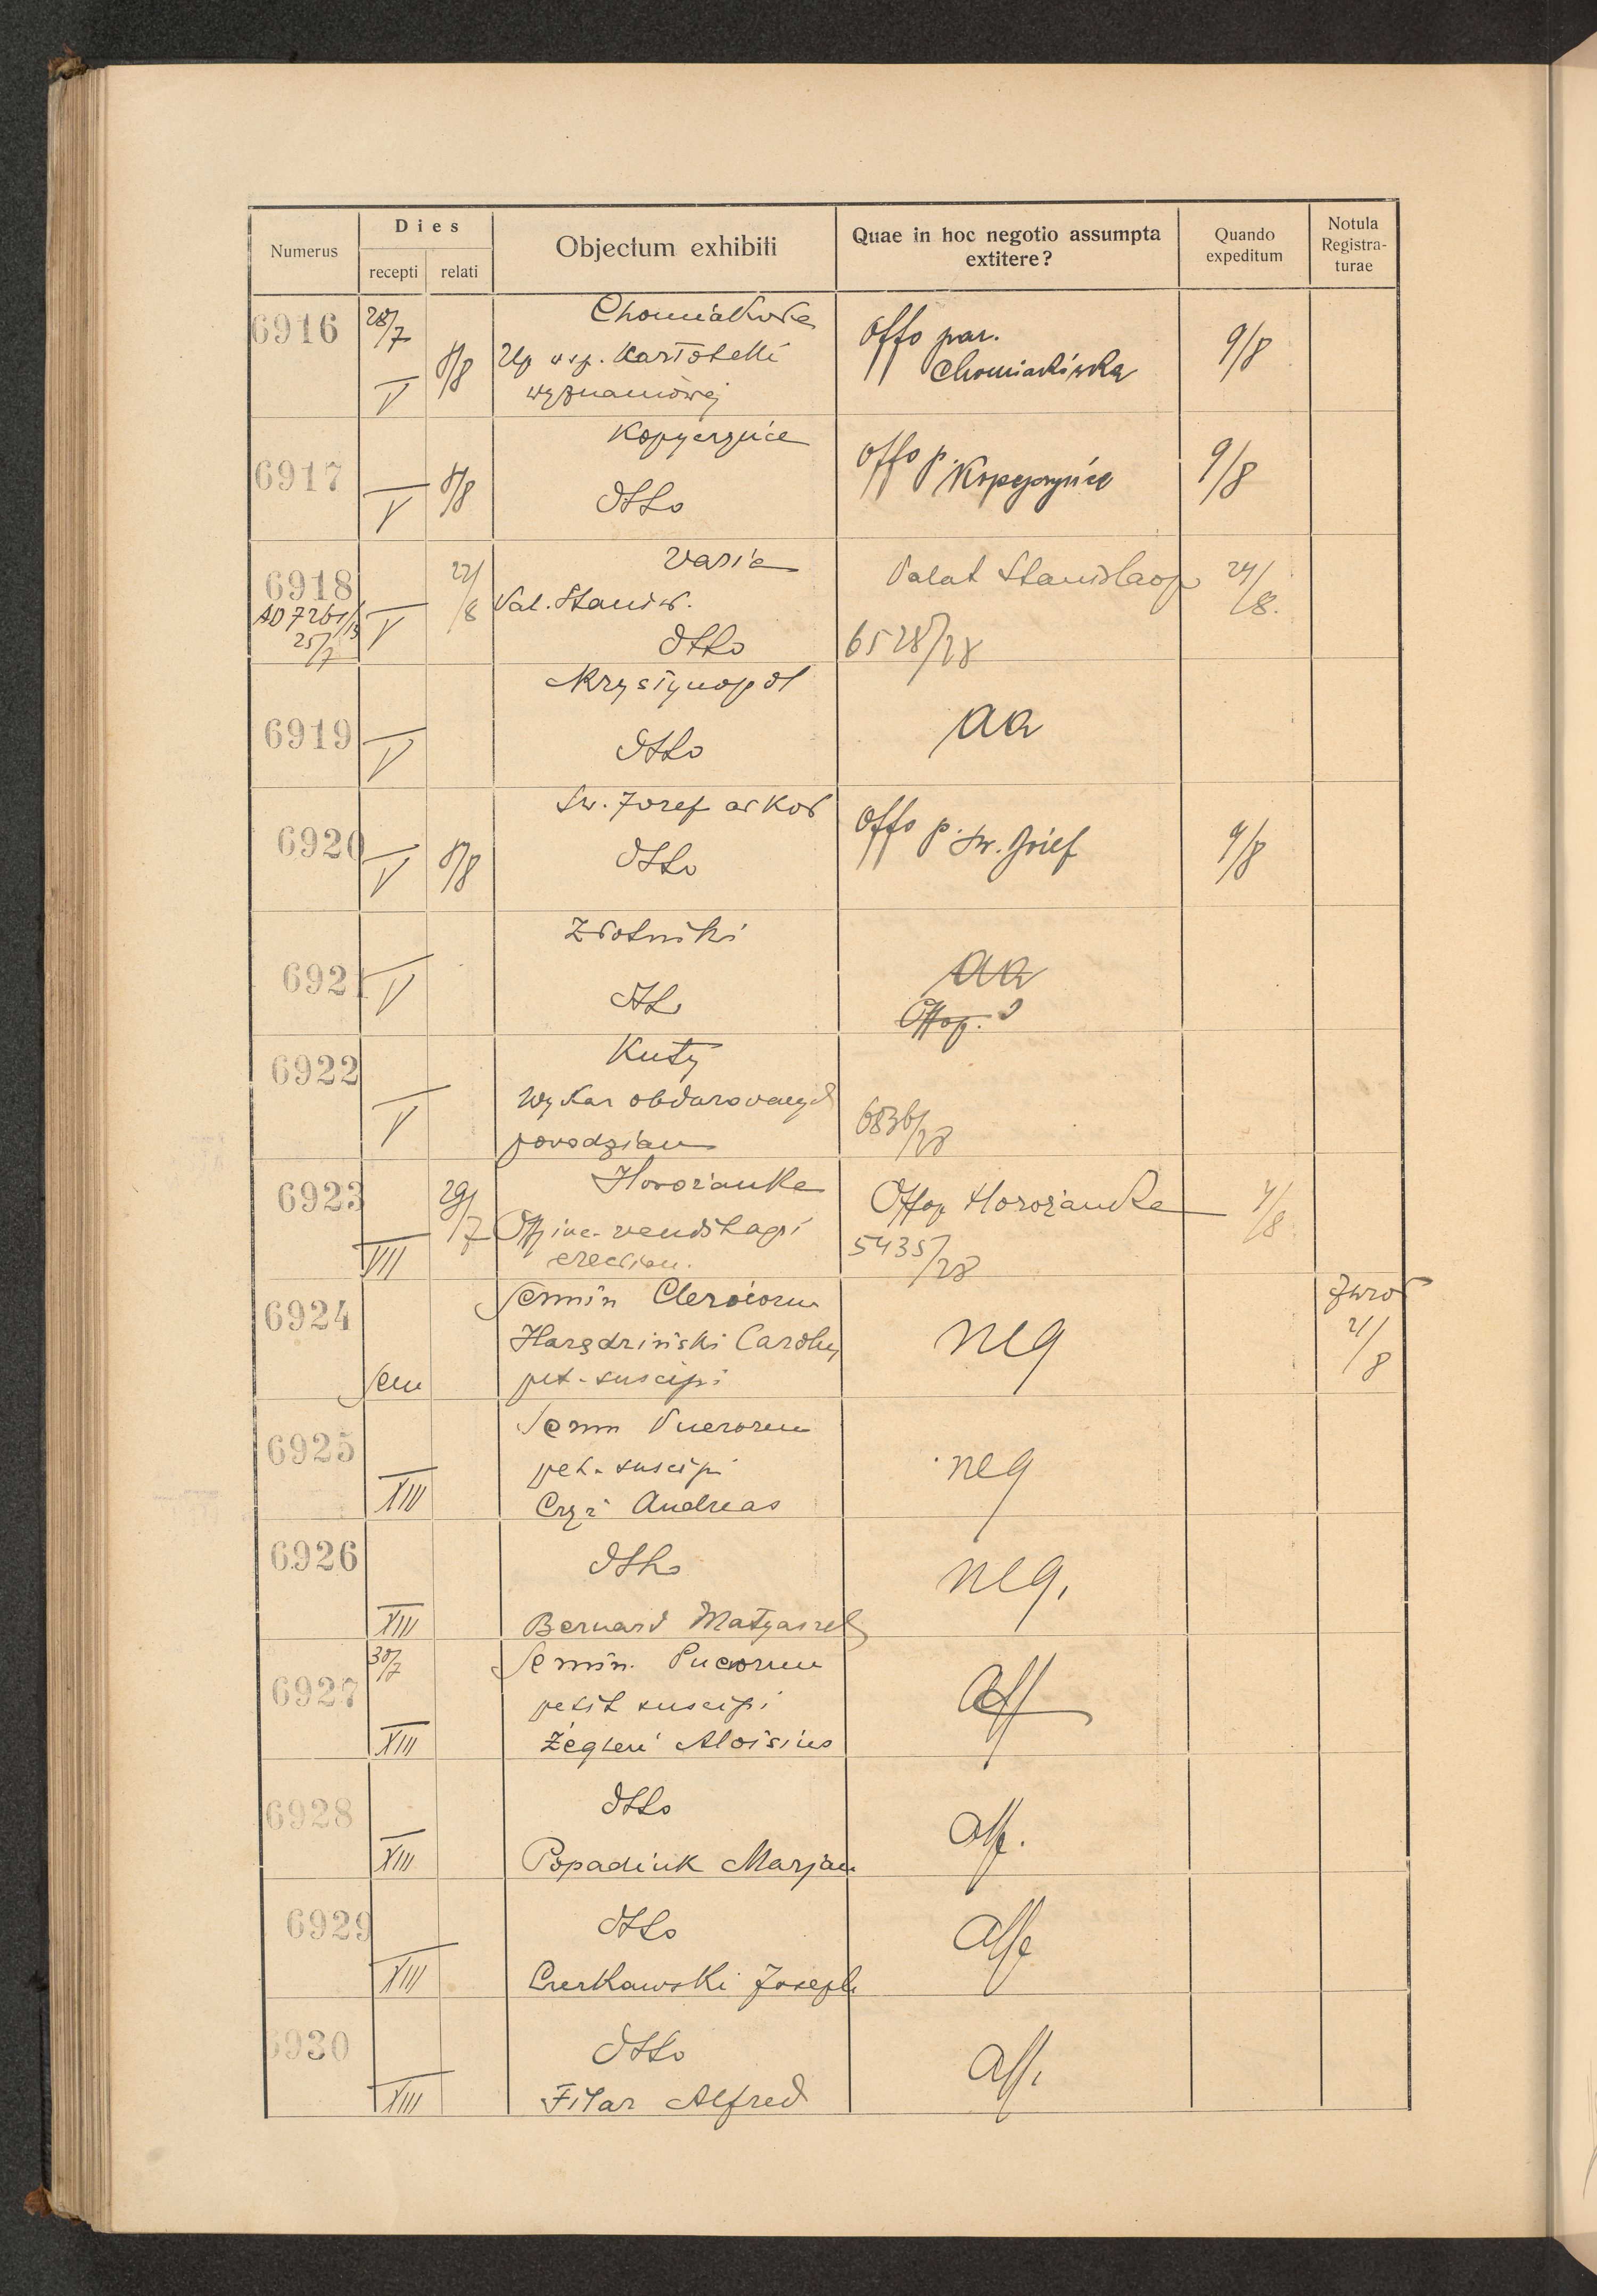 Numerus
Dies
recepti relati
Objectum exhibiti
Quae in hoc negotio assumpta
extitere?
Quando
expeditum
Notula
Registra-
turae
6916 28/7 V 8/8
Chomiakówka
Up wsp. Kartoteki
wyznaniowej
Offo par.
Chomiakówka
9/8
6917 V 8/8
Kopyczyńce
dtto
Offo p. Kopyczyńce
9/8
6918
25/7
V 22/8
Varia
Pal. Stanisł.
dtto
Palat Stanislaop
6528/28
24/8.
6919 V
Krystynopol
dtto
aa
6920 V 8/8
Św. Józef
dtto
Offo p. św. Józef
9/8
6921 V
Złotniki
dtto
aa
Offop.
6922 V
Kuty
Wykaz obdarowanych
powodzian
6836/28
6923 VIII 29/7
Horożanka
erection.
Offop Horożanka
5435/28
4/8
6924 Sem
Semin Clericorum
pet. suscipi
neg
Zwrot
4/8
6925 XIII
Semin Puerorum
pet. suscipi
Andreas
neg
6926 XIII
dtto
Bernard
neg.
6927 30/7 XIII
Semin. Puerorum
petit suscipi
Aloisius
Aff
6928 XIII
dtto
Popadiuk Marjan
Aff.
6929 XIII
dtto
Czerkawski Joseph
Aff
6930 XIII
dtto
Filar Alfred
Aff.